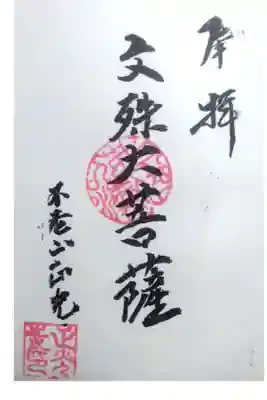 奉拝
文殊大菩薩
不老山正光